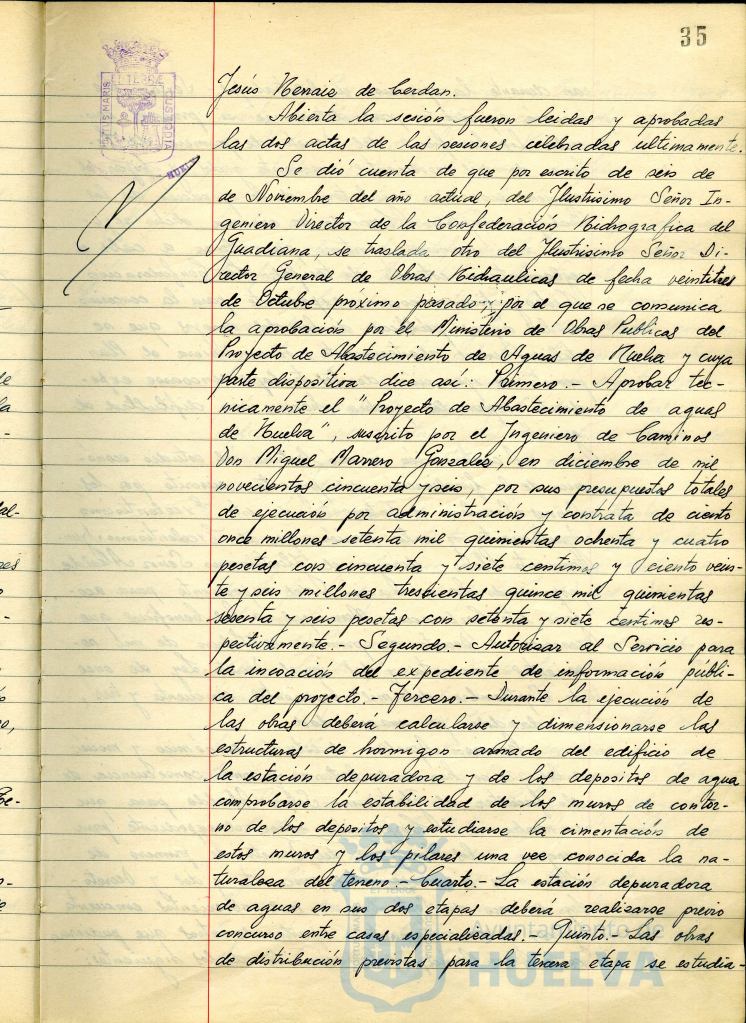 35
Jesús Hernaiz de Cerdan.
Abierta la sesión fueron leidas y aprobadas
las dos actas de las sesiones celebradas ultimamente.
Se dió cuenta de que por escrito de seis de
de Noviembre del año actual, del Ilustrisimo Señor In-
geniero Director de la Confederación Hidrografica del
Guadiana, se traslada otro del Ilustrisimo Señor Di-
rector General de Obras Hidraulicas de fecha veintitres
de Octubre próximo pasado y por el que se comunica
la aprobación por el Ministerio de Obras Publicas del
Proyecto de Abastecimiento de Aguas de Huelva y cuya
parte dispositiva dice así: Primero.- Aprobar tec-
nicamente el "Proyecto de Abastecimiento de aguas
de Huelva", suscrito por el Ingeniero de Caminos
Don Miguel Marrero Gonzalez, en diciembre de mil
novecientos cincuenta y seis, por sus presupuestos totales
de ejecución por administración y contrata de ciento
once millones setenta mil quinientas ochenta y cuatro
pesetas con cincuenta y siete centimos y ciento vein-
te y seis millones trescientas quince mil quinientas
sesenta y seis pesetas con setenta y siete centimos res-
pectivamente.- Segundo.- Autorizar al Servicio para
la incoación del expediente de información públi-
ca del proyecto.- Tercero.- Durante la ejecución de
las obras deberá calcularse y dimensionarse las
estructuras de hormigon armado del edificio de
la estación depuradora y de los depositos de agua
comprobarse la estabilidad de los muros de contor-
no de los depositos y estudiarse la cimentación de
estos muros y los pilares una vez conocida la na-
turaleza del terreno.- Cuarto.- La estación depuradora
de aguas en sus dos etapas deberá realizarse previo
concurso entre casas especializadas.- Quinto.- Las obras
de distribución previstas para la tercera etapa se estudia-
HUELVA